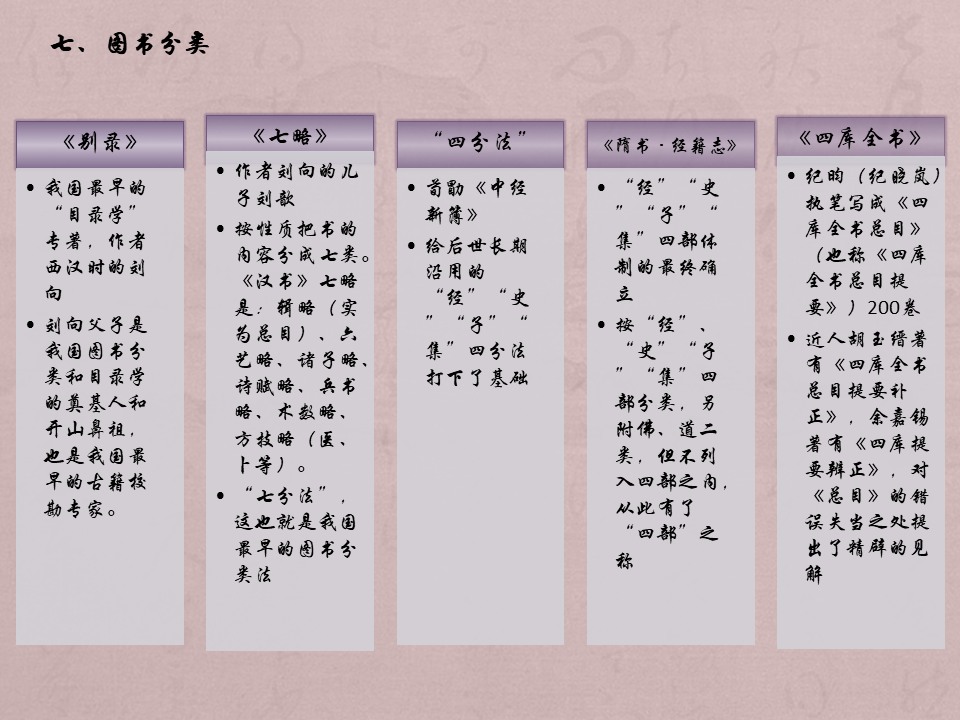 七、图书分类
《别录》
• 我国最早的
“目录学”
专著，作者
西汉时的刘
向
• 刘向父子是
我国图书分
类和目录学
的奠基人和
开山鼻祖，
也是我国最
早的古籍校
勘专家。
《七略》
• 作者刘向的儿
子刘歆
• 按性质把书的
内容分成七类。
《汉书》七略
是：辑略（实
为总目）、六
艺略、诸子略、
诗赋略、兵书
略、术数略、
方技略（医、
卜等）。
• “七分法”，
这也就是我国
最早的图书分
类法
“四分法”
• 荀勖《中经
新簿》
• 给后世长期
沿用的
“经”“史
”“子”“
集”四分法
打下了基础
《隋书·经籍志》
• “经”“史
”“子”“
集”四部体
制的最终确
立
• 按“经”、
“史”“子
”“集”四
部分类，另
附佛、道二
类，但不列
入四部之内，
从此有了
“四部”之
称
《四库全书》
• 纪昀（纪晓岚）
执笔写成《四
库全书总目》
（也称《四库
全书总目提
要》）200卷
• 近人胡玉缙著
有《四库全书
总目提要补
正》，余嘉锡
著有《四库提
要辨正》，对
《总目》的错
误失当之处提
出了精辟的见
解